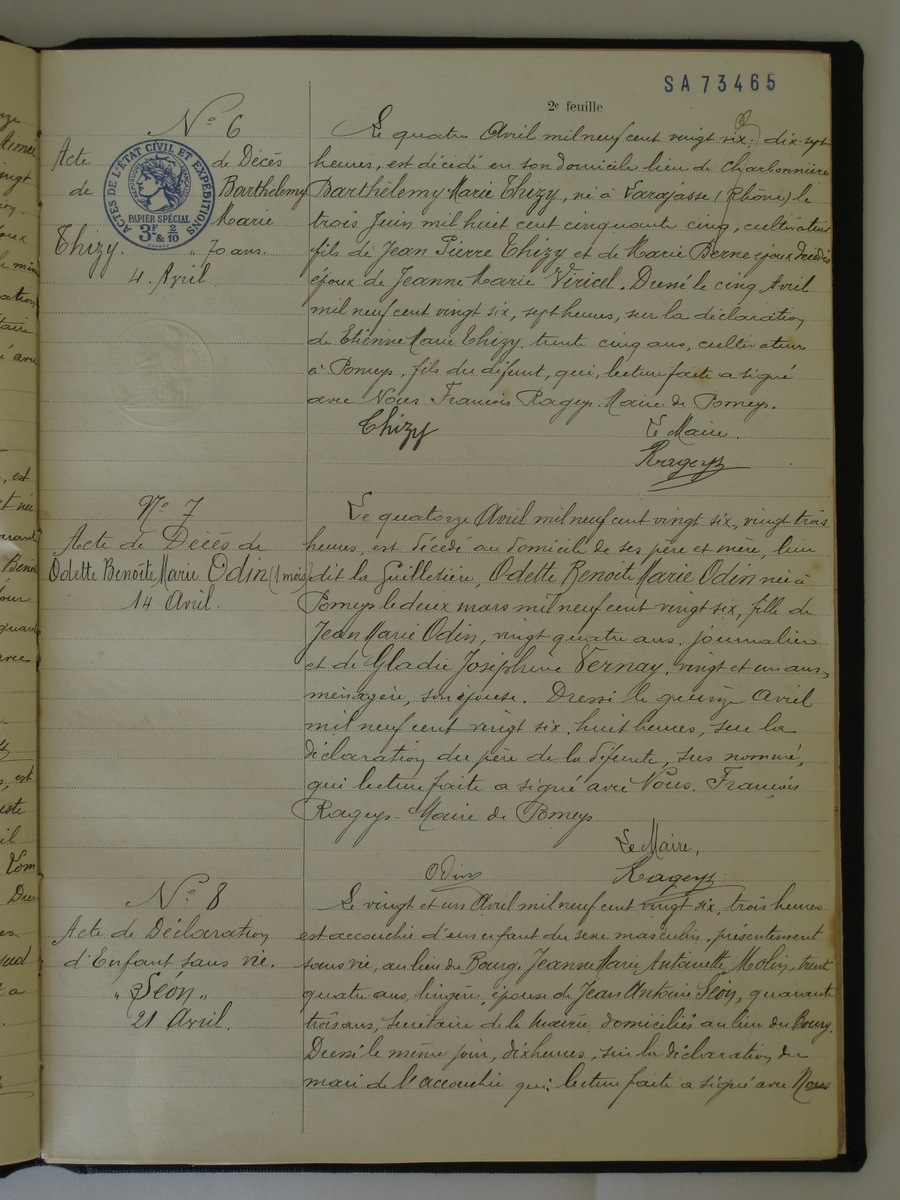 SA 73465
2e feuille
No 6
Acte de Décès
de Barthélemy
Marie
Thizy. 70 ans.
4. Avril
ACTES DE L'ETAT CIVIL ET EXPEDITIONS
PAPIER SPÉCIAL
3F 2/10
Le quatre Avril mil neuf cent vingt six, dix-sept
heures, est décédé en son domicile lieu de Charbonnière
Barthélemy Marie Thizy, né à (Rhône) le
trois Juin mil huit cent cinquante cinq, cultivateur
fils de Jean Pierre Thizy et de Marie Berne époux décédés
époux de Jeanne Marie Viricel. Dressé le cinq Avril
mil neuf cent vingt six, sept heures, sur la déclaration
de Etienne Marie Thizy, trente cinq ans, cultivateur
à Pomeys, fils du défunt, qui, lecture faite a signé
avec Nous François Rageys Maire de Pomeys.
Thizy Le Maire.
Rageys
No 7
Acte de Décès de
Odette Benoite Marie Odin (1 mois)
14 Avril.
Le quatorze Avril mil neuf cent vingt six, vingt trois
heures, est décédé au domicile de ses père et mère, lieu
dit la Guilletière, Odette Benoite Marie Odin née à
Pomeys le deux mars mil neuf cent vingt six, fille de
Jean Marie Odin, vingt quatre ans, journalier
et de Gladie Joséphine Vernay, vingt et un ans,
ménagère, son épouse. Dressé le quinze Avril
mil neuf cent vingt six, huit heures, sur la
déclaration du père de la défunte, sus nommé,
qui lecture faite a signé avec Nous. François
Rageys - Maire de Pomeys
Le Maire,
Odin Rageys
No 8
Acte de Déclaration
d'Enfant sans vie.
" Séon "
21 Avril.
Le vingt et un Avril mil neuf cent vingt six, trois heures
est accouchée d'un enfant du sexe masculin, présentement
sans vie, au lieu du Bourg, Jeanne Marie Antoinette Molin, trente
quatre ans, lingère, épouse de Jean Antoine Séon, quarante
trois ans, Secrétaire de la mairie, domiciliés au lieu du Bourg.
Dressé le même jour, dix heures, sur la déclaration du
mari de l'accouchée qui, lecture faite a signé avec Nous